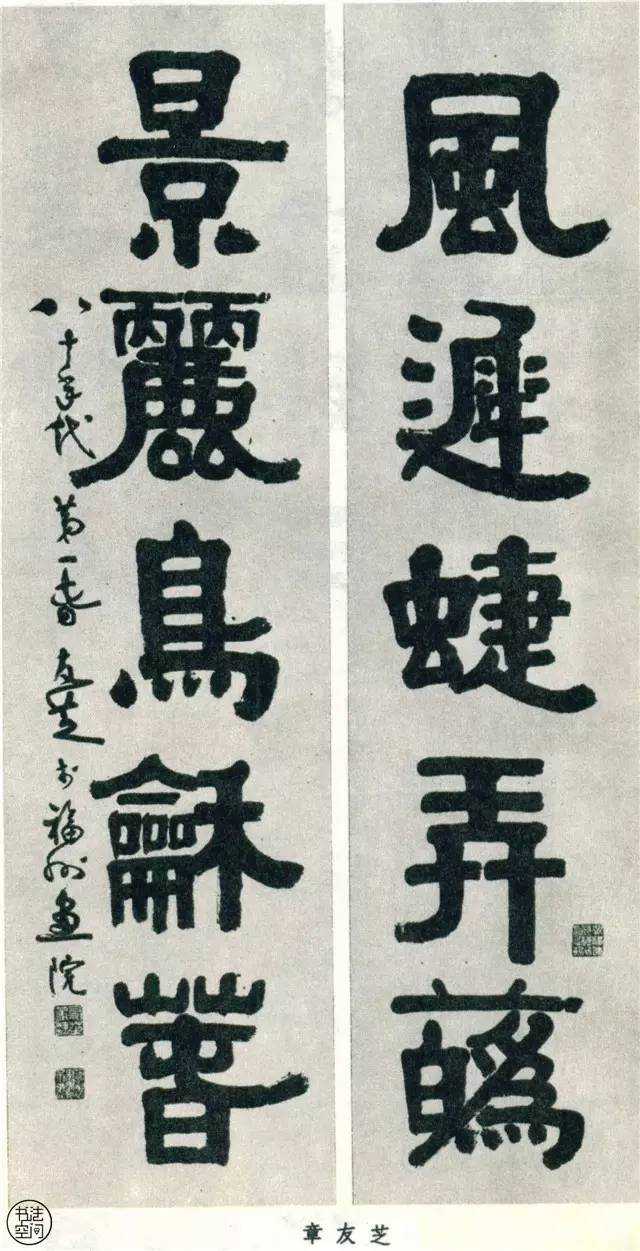 風遲蜨弄蘤
景麗鳥龢萅
八十年代第一春友芝書福州畫院
章友芝
书法空间